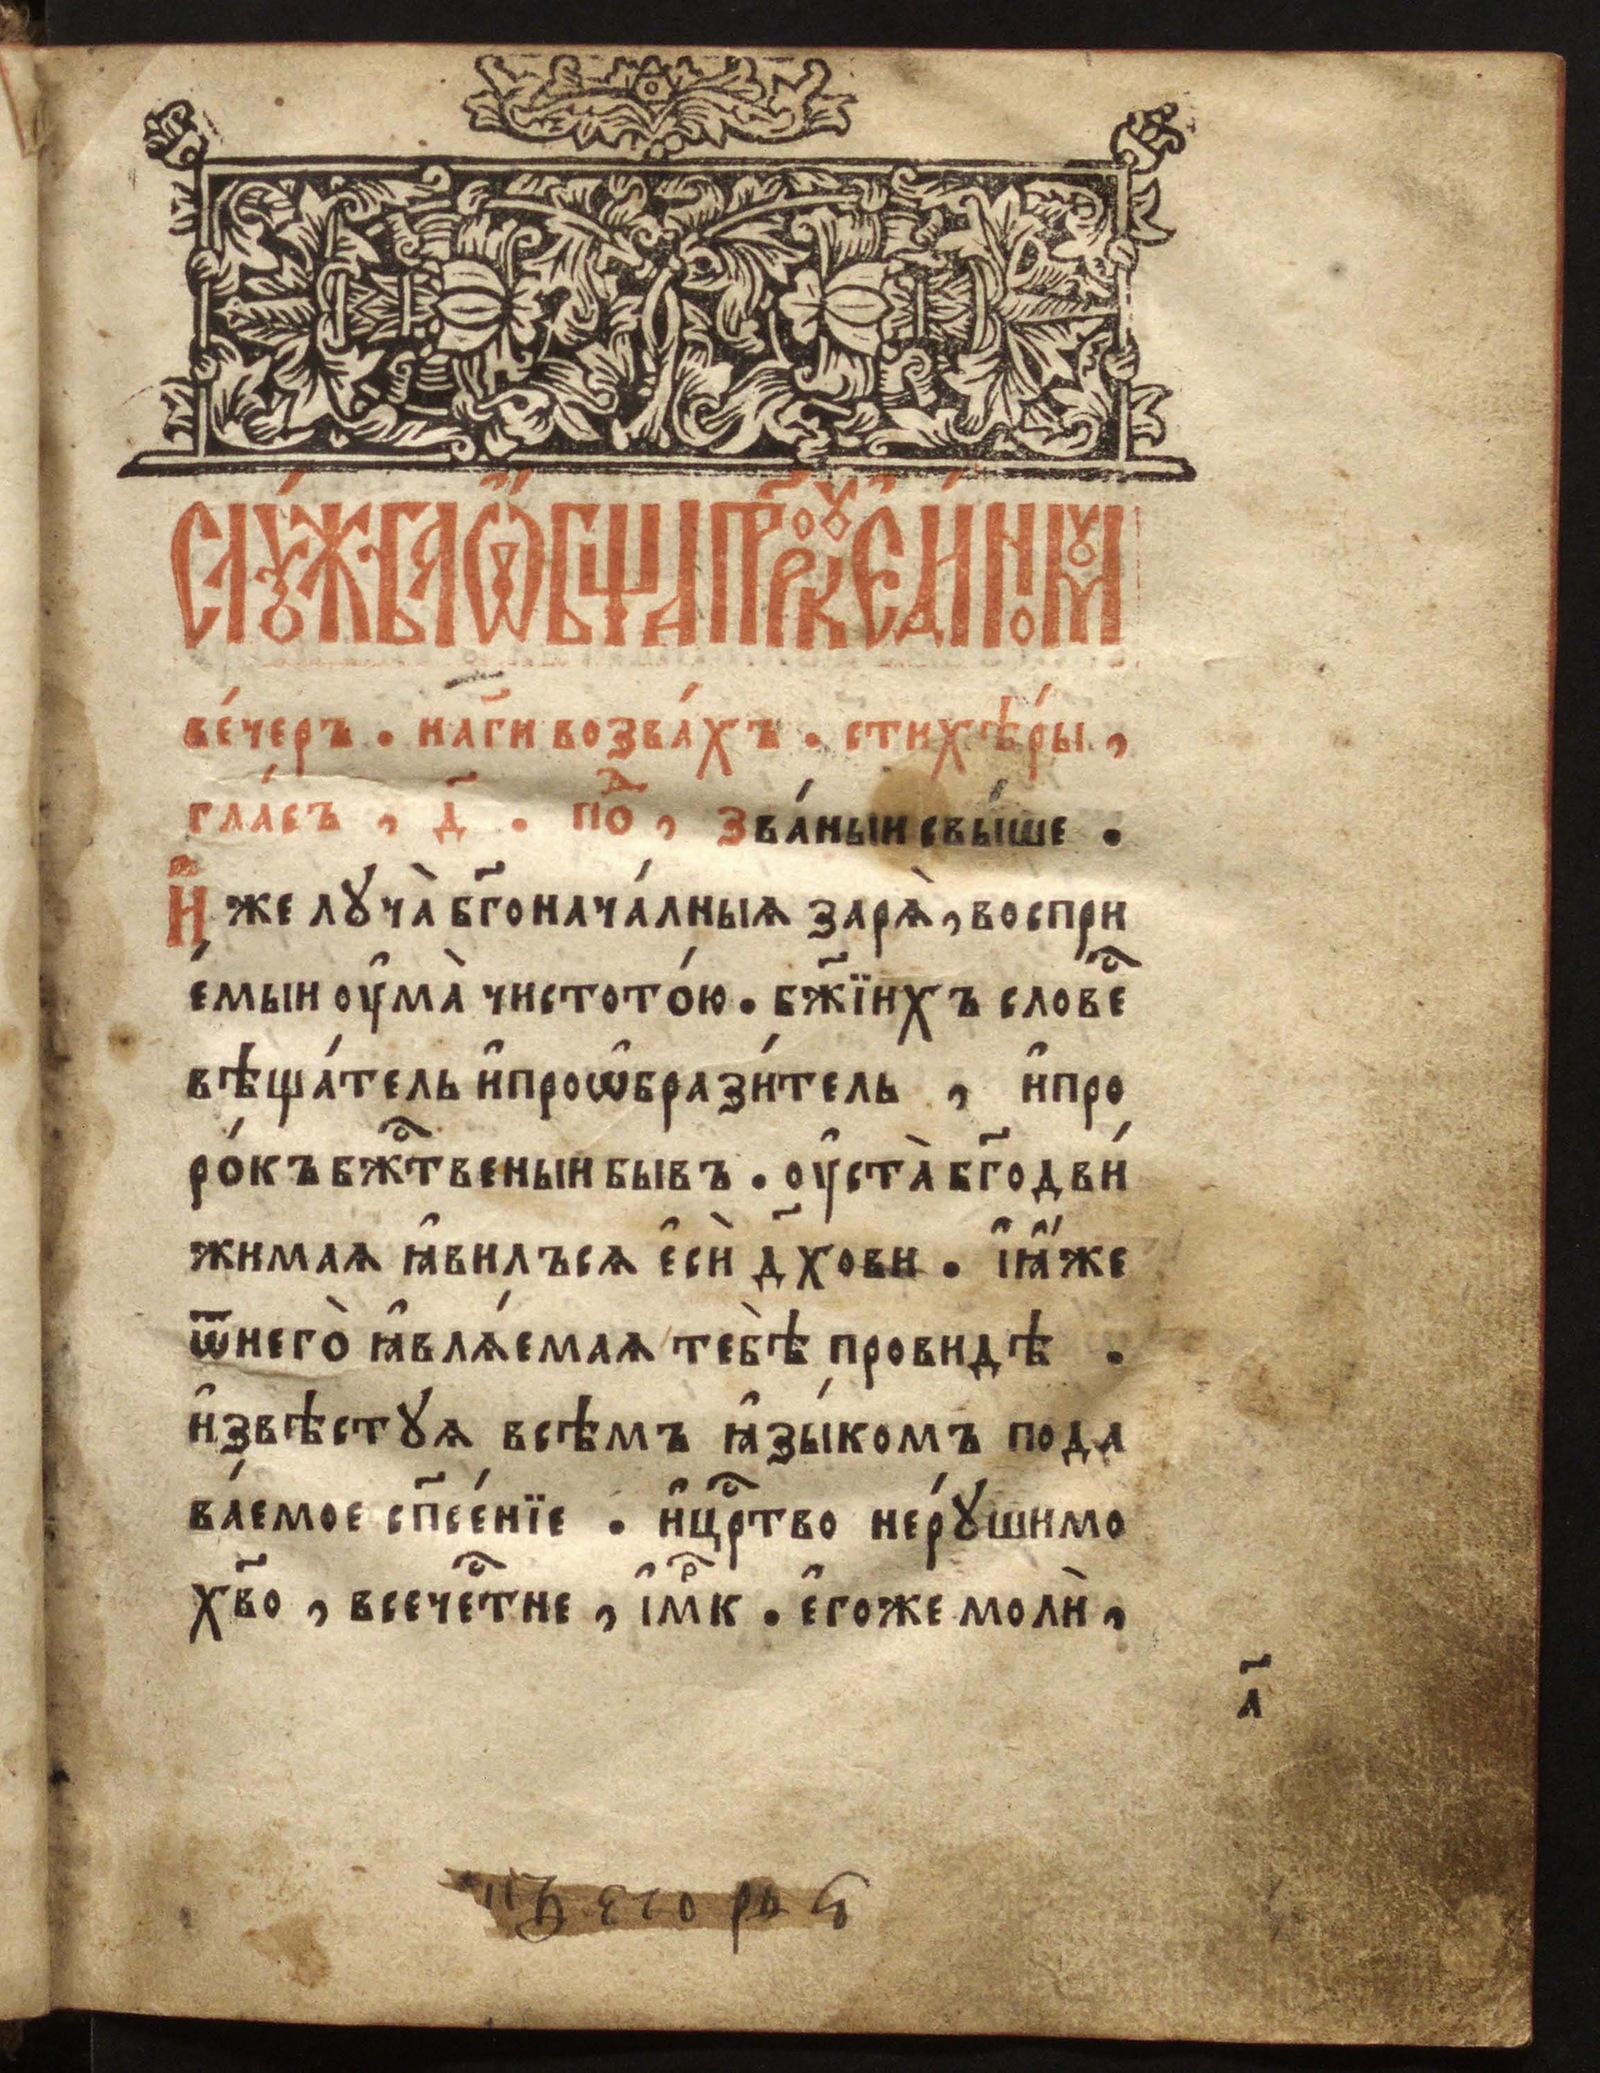 слꙋ́жбаѡ҆́бщаѧпрⷪ҇рꙋ́кꙋе҆ди́номꙋ
ве́черъ . наг҃и возва́хъ . стихѣ́ры ,
гла́съ , д҃ . поⷣ , зва́ныи свы́ше .
И҆́же лꙋча̀ бг҃онача́лныѧ зарѧ̀, воспри
е́мыи ᲂу҆ма̀ чистото́ю . бж҃їихъ словеⷭ҇
вѣща́тель и҆проѡ҆брази́тель , и҆про
ро́къ бжⷭ҇твеныи бывъ . ᲂу҆ста̀ бг҃одви́
жимаѧ ꙗ҆вилъсѧ є҆сѝ дх҃ови . і҆ꙗ҆́же
ѿнего̀ ꙗ҆влѧ́емаѧ тебѣ̀ провидѣ .
и҆звѣстꙋѧ всѣмъ ꙗ҆зы́комъ пода
ва́емое сп҃се́нїе . и҆црⷭ҇тво нерꙋ́шимо
хв҃о , всечеⷭ҇тне , і҆мⷬ҇к . є҆гоже молѝ ,
а҃